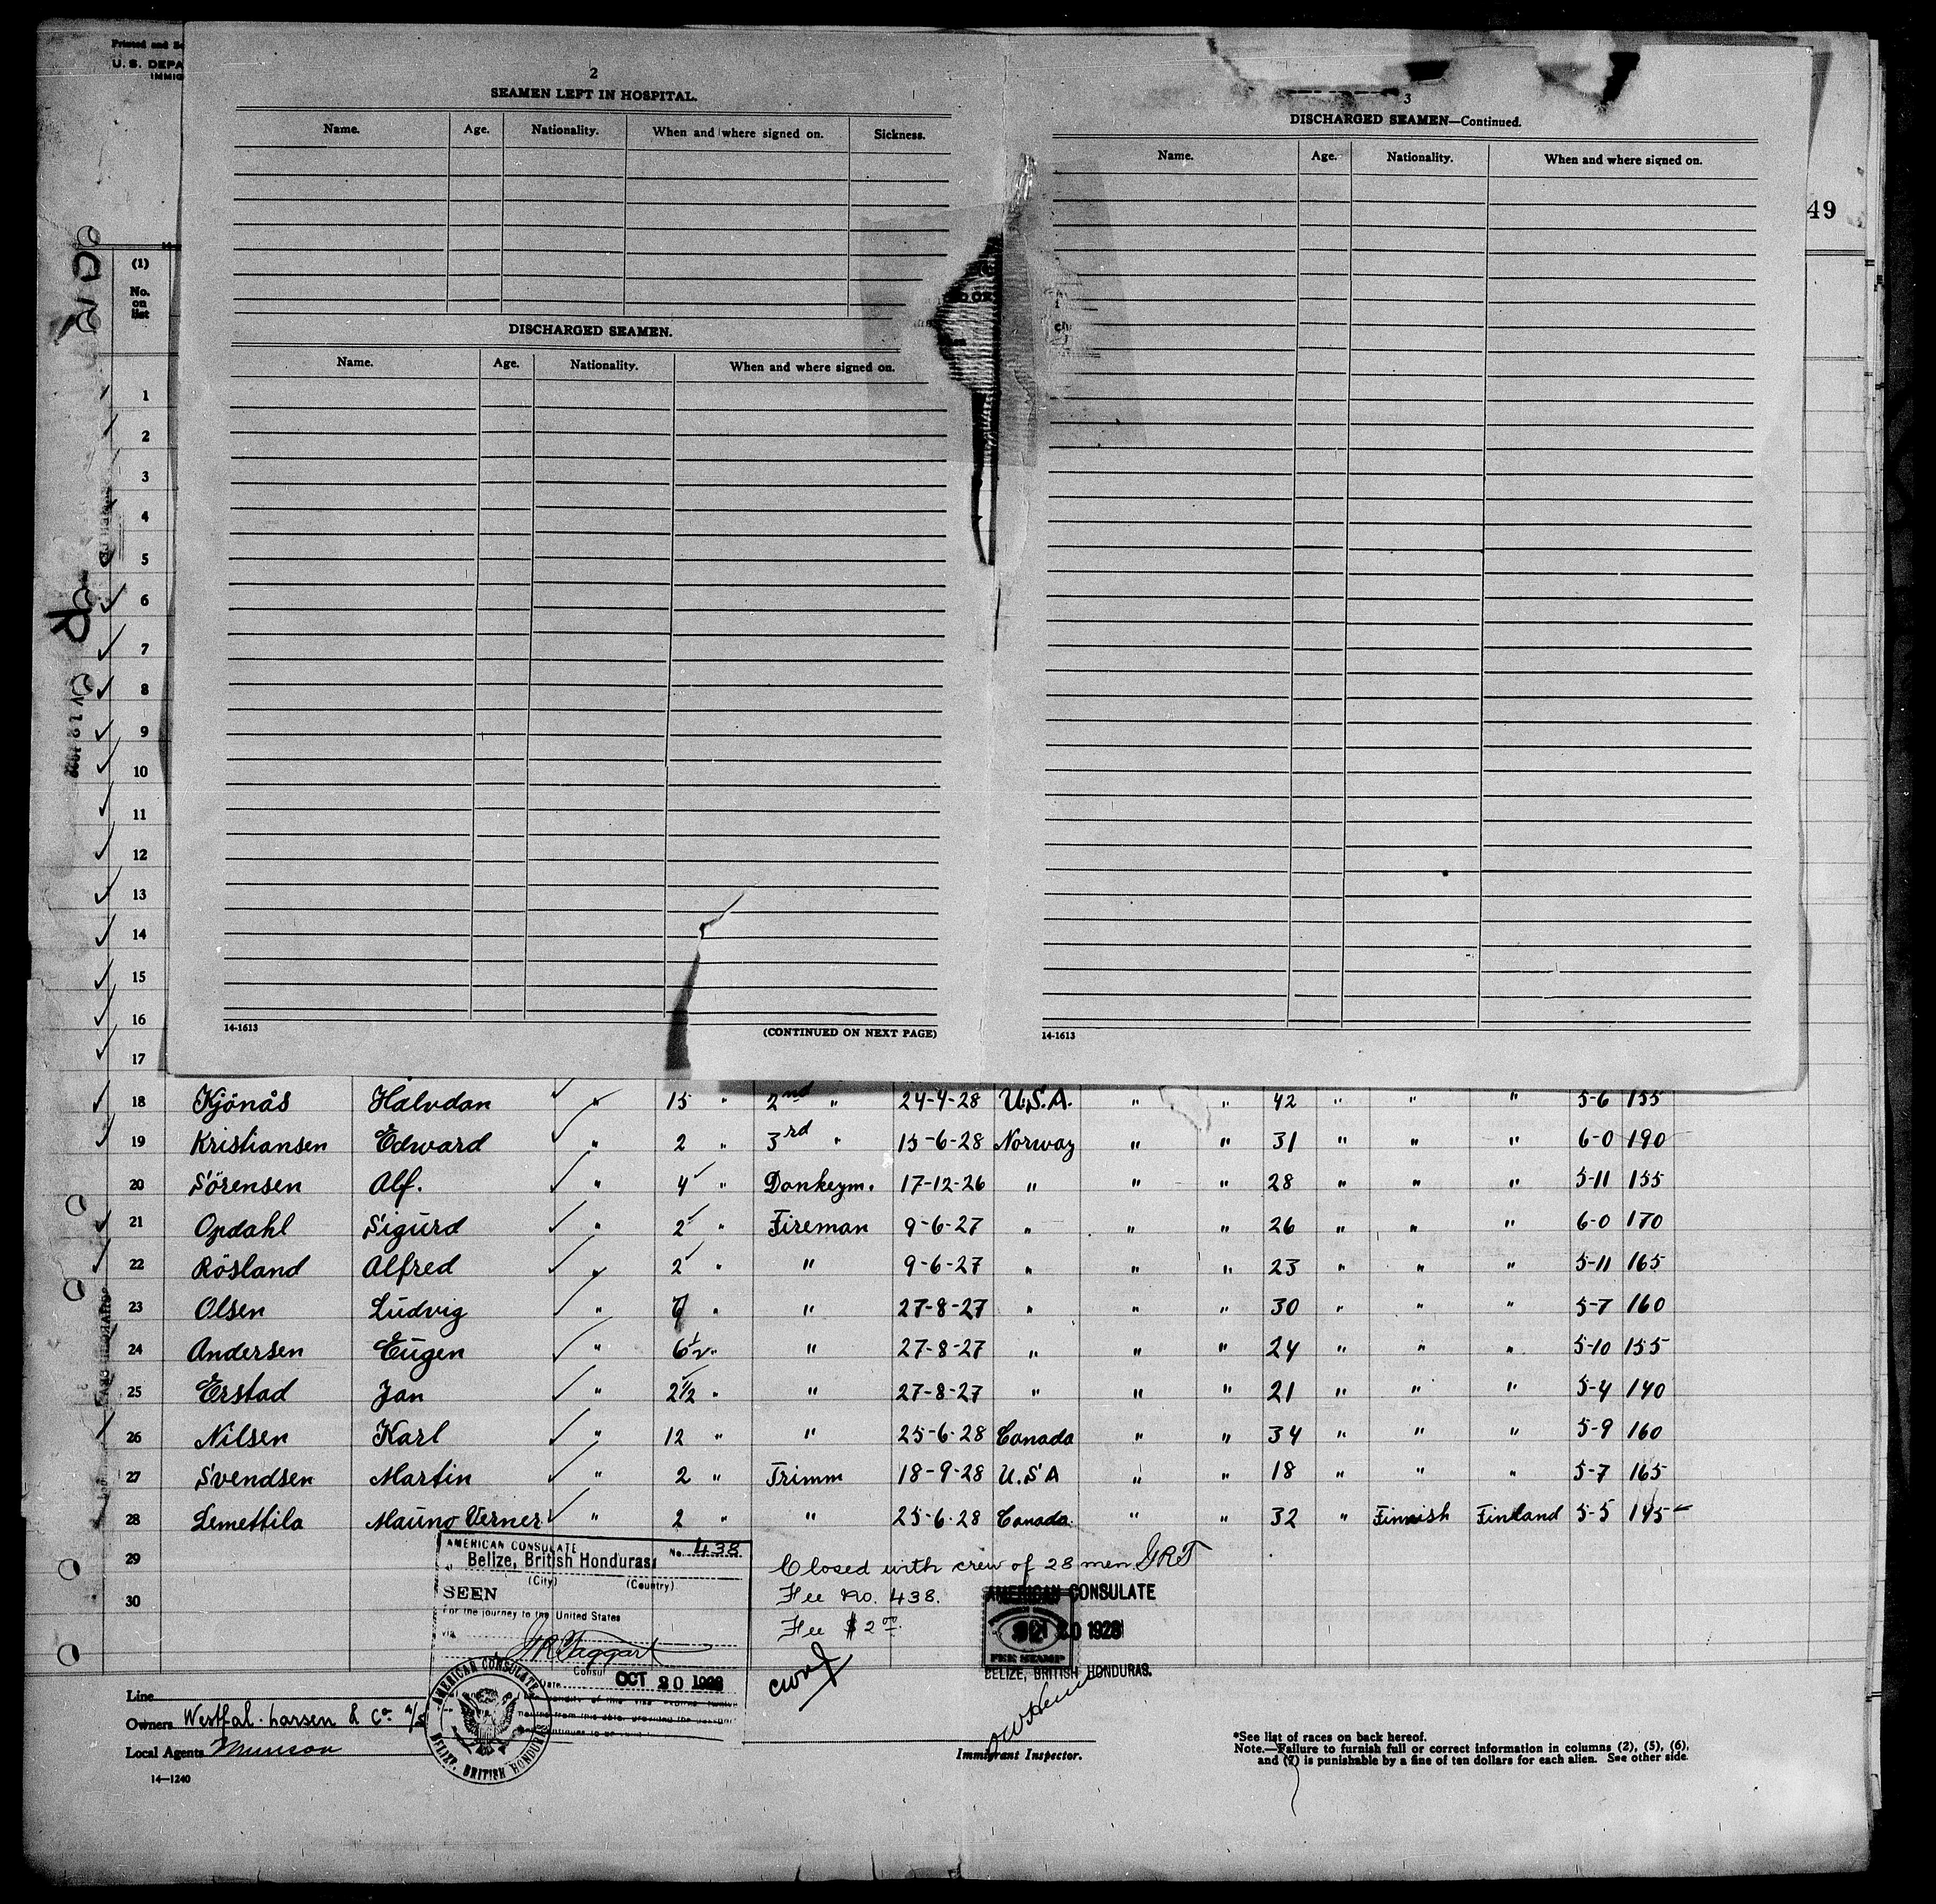 Printed and
U. S. DEPA
IMMIG
2
SEAMEN LEFT IN HOSPITAL.
Name. Age. Nationality. When and where signed on. Sickness.
DISCHARGED SEAMEN.
Name. Age. Nationality. When and where signed on.
14-1613 (CONTINUED ON NEXT PAGE)
3
DISCHARGED SEAMEN—Continued.
Name. Age. Nationality. When and where signed on.
14-1613
49
(1)
No.
on
list
1
2
3
4
5
6
7
8
9
10
11
12
13
14
15
16
17
18 Kjönås Halvdan " 15 " 2nd " 24-4-28 U.S.A. " " 42 " " " 5-6 155
19 Kristiansen Edward " 2 " 3rd " 15-6-28 Norway " " 31 " " " 6-0 190
20 Sörensen Alf. " 4 " Donkeym. 17-12-26 " " " 28 " " " 5-11 155
21 Opdahl Sigurd " 2 " Fireman 9-6-27 " " " 26 " " " 6-0 170
22 Rösland Alfred " 2 " " 9-6-27 " " " 23 " " " 5-11 165
23 Olsen Ludvig " " " 27-8-27 " " " 30 " " " 5-7 160
24 Andersen Eugen " 6½ " " 27-8-27 " " " 24 " " " 5-10 155
25 Erstad Jan " 2½ " " 27-8-27 " " " 21 " " " 5-4 140
26 Nilsen Karl " 12 " " 25-6-28 Canada " " 34 " " " 5-9 160
27 Svendsen Martin " 2 " Trimm 18-9-28 U.S.A " " 18 " " " 5-7 165
28 Lemettila Mauno Verner " 2 " " 25-6-28 Canada " " 32 " Finnish Finland 5-5 145
29
30
AMERICAN CONSULATE
Belize, British Honduras No. 438
(City) (Country)
SEEN
For the journey to the United States
via
G R Taggart
Consul
Date OCT 20 1928
AMERICAN CONSULATE
BELIZE, BRITISH HONDURAS
Closed with crew of 28 men GRT
Fee No. 438.
Fee $2.00
AMERICAN CONSULATE
20 1928
FEE STAMP
BELIZE, BRITISH HONDURAS.
Line
Owners Westfal-Larsen & Co. A/S
Local Agents Munson
14—1240
Immigrant Inspector.
*See list of races on back hereof.
Note.—Failure to furnish full or correct information in columns (2), (5), (6),
and (7) is punishable by a fine of ten dollars for each alien. See other side.